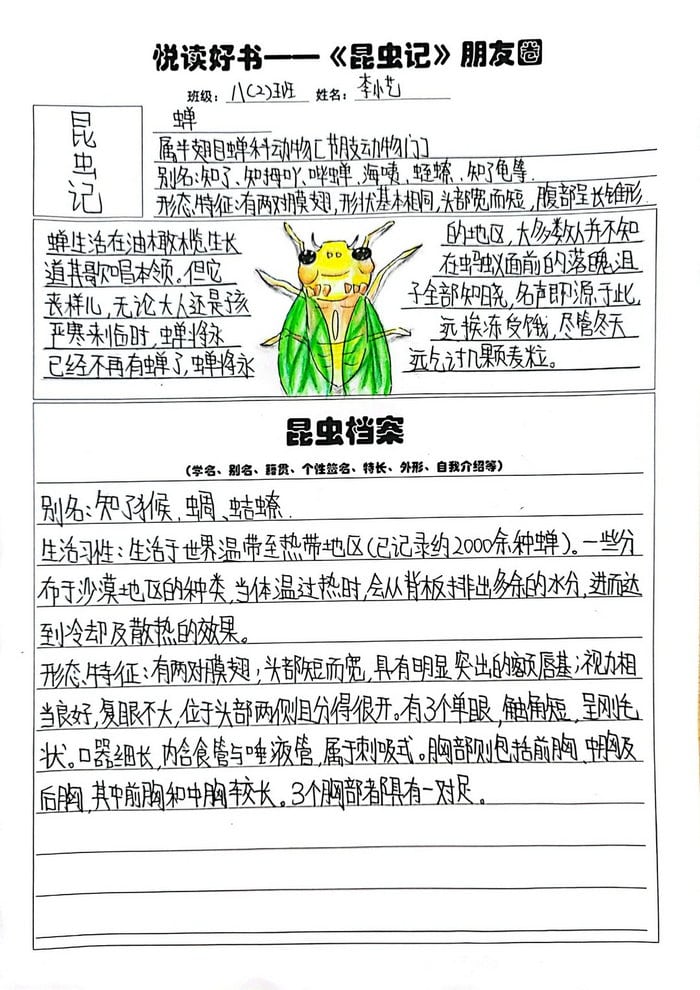 悦读好书——《昆虫记》朋友圈
班级：八(2)班 姓名：李小艺
昆虫记
蝉
属半翅目蝉科动物[节肢动物门]
别名：知了、知拇吖、哔蝉、海咦、蛭蟟、知了龟等.
形态特征：有两对膜翅，形状基本相同，头部宽而短，腹部呈长锥形.
蝉生活在油橄榄生长的地区，大多数人并不知
道其歌唱本领。但它在蚂蚁面前的落魄沮
丧样儿，无论大人还是孩子全部知晓，名声即源于此，
严寒来临时，蝉将永远挨冻受饿，尽管冬天
已经不再有蝉了，蝉将永远乞讨几颗麦粒。
昆虫档案
（学名、别名、籍贯、个性签名、特长、外形、自我介绍等）
别名：知了猴、蜩、蛣蟟.
生活习性：生活于世界温带至热带地区(已记录约2000余种蝉)。一些分
布于沙漠地区的种类，当体温过热时，会从背板排出多余的水分，进而达
到冷却及散热的效果。
形态特征：有两对膜翅；头部短而宽，具有明显突出的额唇基；视力相
当良好，复眼不大，位于头部两侧且分得很开。有3个单眼，触角短，呈刚毛
状。口器细长，内含食管与唾液管，属于刺吸式。胸部则包括前胸、中胸及
后胸，其中前胸和中胸较长。3个胸部都具有一对足。